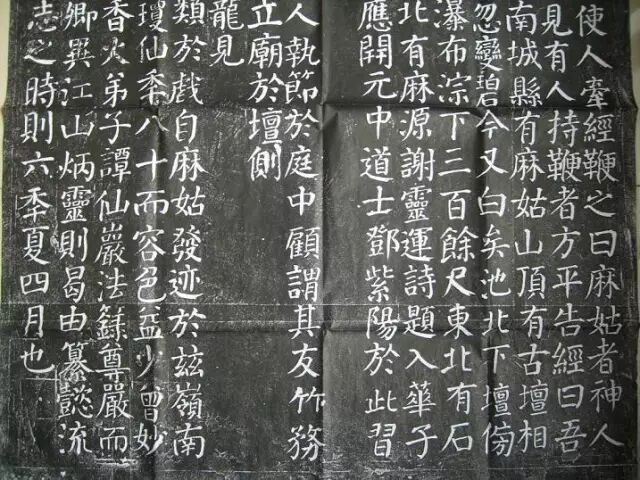 使人牽經鞭之曰麻姑者神人
見有人持鞭者方平告經曰吾
南城縣有麻姑山頂有古壇相
忽變碧今又白矣池北下壇傍
瀑布淙下三百餘尺東北有石
北有麻源謝靈運詩題入華子
應開元中道士鄧紫陽於此習
人執節於庭中顧謂其友竹務
立廟於壇側
龍見
類於戲自麻姑發迹於茲嶺南
瓊仙秊八十而容色益少曾妙
香火弟子譚仙巖法籙尊嚴而
卿異江山炳靈則曷由纂懿流
志之時則六秊夏四月也